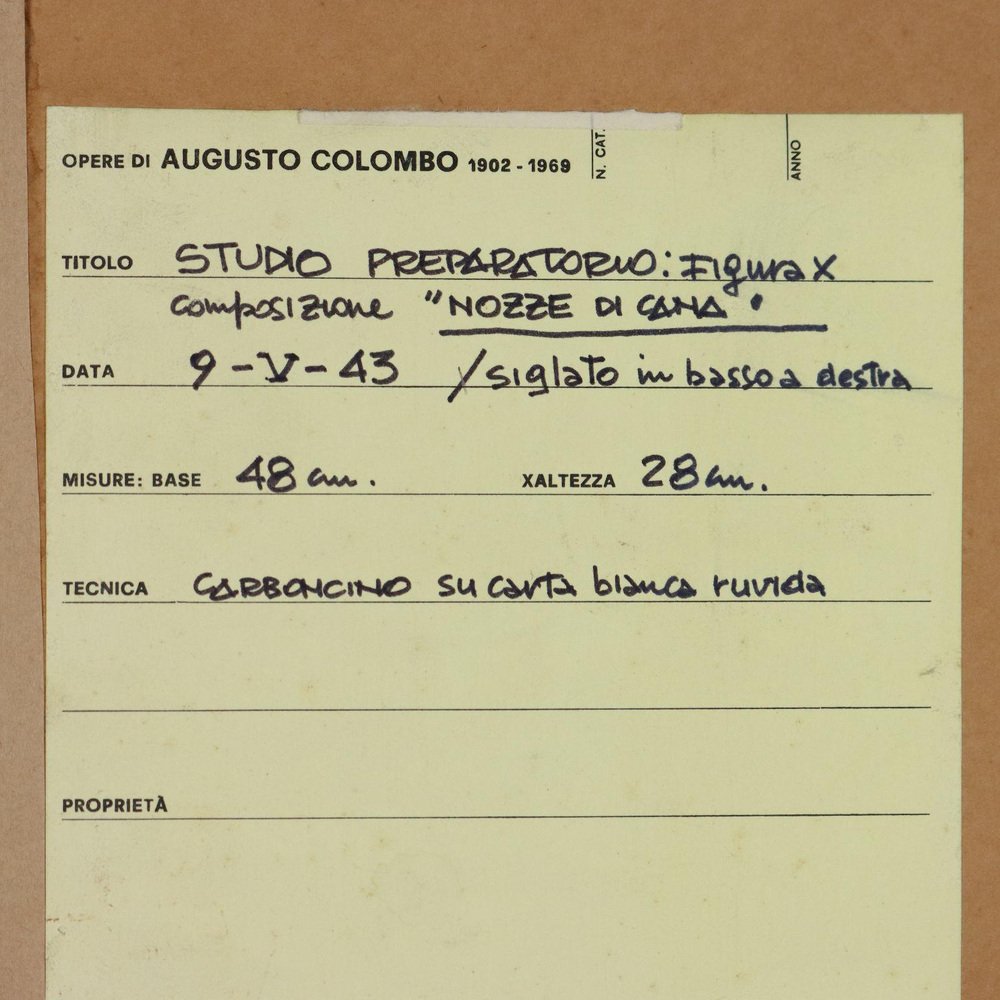 OPERE DI AUGUSTO COLOMBO 1902 - 1969
N. CAT.
ANNO
TITOLO STUDIO PREPARATORIO: Figura X
composizione "NOZZE DI CANA"
DATA 9-V-43 /siglato in basso a destra
MISURE: BASE 48 cm. XALTEZZA 28 cm.
TECNICA CARBONCINO su carta bianca ruvida
PROPRIETÀ